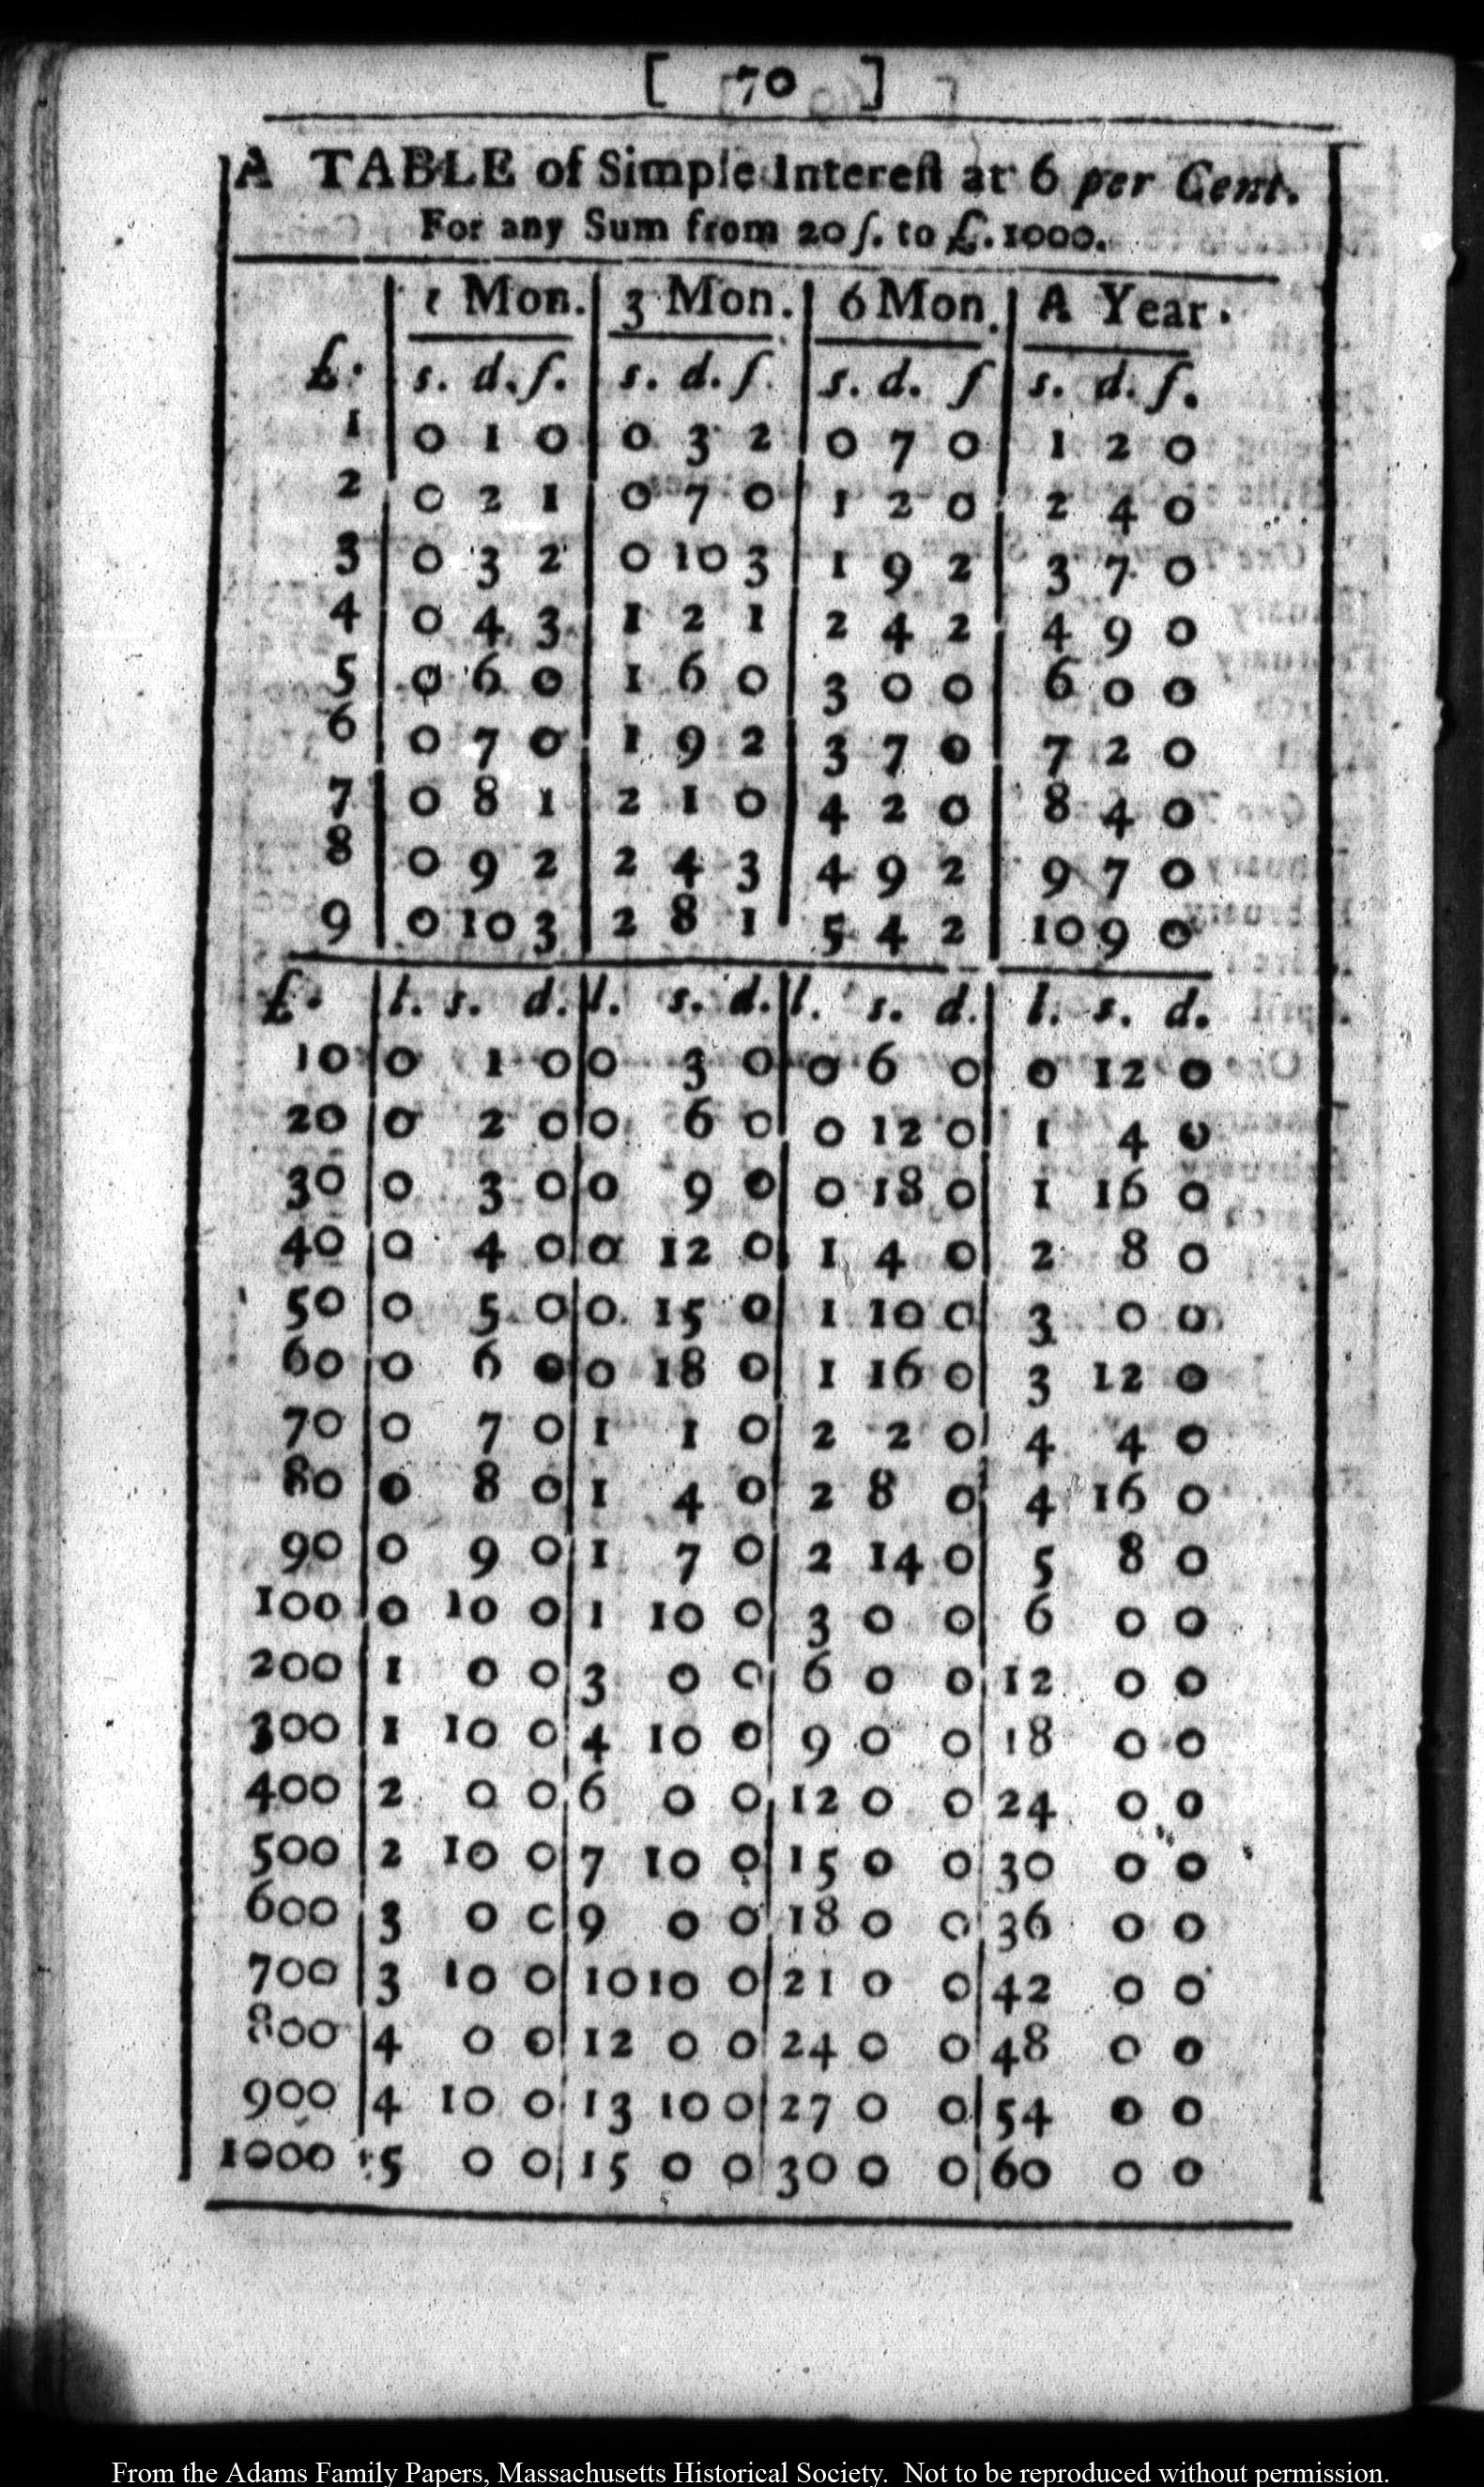 [ 70 ]
A TABLE of Simple Intereſt at 6 per Cent.
For any Sum from 20 ſ. to £. 1000.
1 Mon. 3 Mon. 6 Mon. A Year.
£. s. d. f. s. d. f. s. d. f s. d. f.
1 0 1 0 0 3 2 0 7 0 1 2 0
2 0 2 1 0 7 0 1 2 0 2 4 0
3 0 3 2 0 10 3 1 9 2 3 7 0
4 0 4 3 1 2 1 2 4 2 4 9 0
5 0 6 0 1 6 0 3 0 0 6 0 0
6 0 7 0 1 9 2 3 7 0 7 2 0
7 0 8 1 2 1 0 4 2 0 8 4 0
8 0 9 2 2 4 3 4 9 2 9 7 0
9 0 10 3 2 8 1 5 4 2 10 9 0
£. l. s. d. l. s. d. l. s. d. l. s. d.
10 0 1 0 0 3 0 0 6 0 0 12 0
20 0 2 0 0 6 0 0 12 0 1 4 0
30 0 3 0 0 9 0 0 18 0 1 16 0
40 0 4 0 0 12 0 1 4 0 2 8 0
50 0 5 0 0 15 0 1 10 0 3 0 0
60 0 6 0 0 18 0 1 16 0 3 12 0
70 0 7 0 1 1 0 2 2 0 4 4 0
80 0 8 0 1 4 0 2 8 0 4 16 0
90 0 9 0 1 7 0 2 14 0 5 8 0
100 0 10 0 1 10 0 3 0 0 6 0 0
200 1 0 0 3 0 0 6 0 0 12 0 0
300 1 10 0 4 10 0 9 0 0 18 0 0
400 2 0 0 6 0 0 12 0 0 24 0 0
500 2 10 0 7 10 0 15 0 0 30 0 0
600 3 0 0 9 0 0 18 0 0 36 0 0
700 3 10 0 10 10 0 21 0 0 42 0 0
800 4 0 0 12 0 0 24 0 0 48 0 0
900 4 10 0 13 10 0 27 0 0 54 0 0
1000 5 0 0 15 0 0 30 0 0 60 0 0
From the Adams Family Papers, Massachusetts Historical Society. Not to be reproduced without permission.